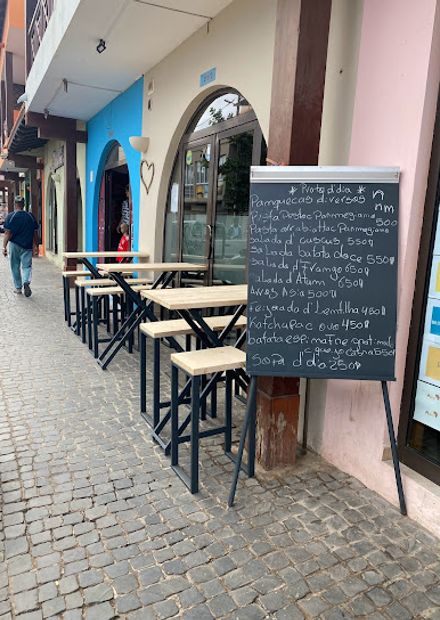 * Proto d'dia *
Panquecas diversas
Pasta Pesto c Parmegiana 500
Pasta arrabiatta c Parmegiana
Salada d' cuscus 550
Salada batata doce 550
Salada d' Frango 650
Salada d' Atum 650
Arros Asia 500
Feijoada d' Lentilha 450
Katchupa c ovo 450
batata
queijo cabra 550
Sopa d' dia 250